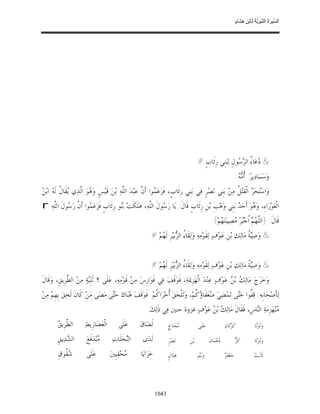 السِّيرَةُ النَّبَوِيَّةُ لِابْنِ هِشَامٍ
دُعَاءُ الرَّسُولِ لِبَنِي رِئَابٍ
وَسَمَادِيرُ. أُمُّهُ
وَاسْتَحَرَّ الْقَتْلُ مِنْ بَنِي نَصْرٍ فِي بَنِي رِئَابٍ، فَزَعَمُوا أَنَّ عَبْدَ اللَّهِ بْنَ قَيْسٍ وَهُوَ الَّذِي يُقَالُ لَهُ ابْنُ
الْعَوْرَاءِ، وَهُوَ أَحَدُ بَنِي وَهْبِ بْنِ رِئَابٍ قَالَ: يَا رَسُولَ اللَّهِ، هَلَكَتْ بَنُو رِئَابٍ فَزَعَمُوا أَنَّ رَسُولَ اللَّهِ
قَالَ: (اللَّهُمَّ اُجْبُرْ مُصِيبَتَهُمْ)
وَصِيَّةُ مَالِكِ بْنِ عَوْفٍ لِقَوْمِهِ وَلِقَاءُ الزُّبَيْرِ لَهُمْ
وَصِيَّةُ مَالِكِ بْنِ عَوْفٍ لِقَوْمِهِ وَلِقَاءُ الزُّبَيْرِ لَهُمْ #
وَخَرَجَ مَالِكُ بْنُ عَوْفٍ عِنْدَ الْهَزِيمَةِ، فَوَقَفَ فِي فَوَارِسَ مِنْ قَوْمِهِ، عَلَى ؟ ثَنِيَّةٍ مِنْ الطَّرِيقِ، وَقَالَ
لِأَصْحَابِهِ: قِفُوا حَتَّى تَمْضِيَ ضُعَفَاؤُكُمْ، وَتَلْحَقَ أُخْرَاكُمْ. فَوَقَفَ هُنَاكَ حَتَّى مَضَى مَنْ كَانَ لَحِقَ بِهِمْ مِنْ
مُنْهَزِمَةِ النَّاسِ، فَقَالَ مَالِكُ بْنُ عَوْفٍ غزوة حنين فِي ذَلِكَ:
وَلَوْلَا كَرَّتَانِ عَلَى مُحَاجٍ لَضَاقَ عَلَى الْعَضَارِيطِ الطَّرِيقُ
وَلَوْلَا كَرُّ دُهْمَانَ بْنِ نَصْرٍ لَدَى النَّخَلَاتِ مُنْدَفَعَ الشَّدِيقِ
لَآبَتْ جَعْفَرٌ وَبَنُو هِلَالٍ خَزَايَا مُحْقِبِينَ عَلَى شُقُوقِ
1043